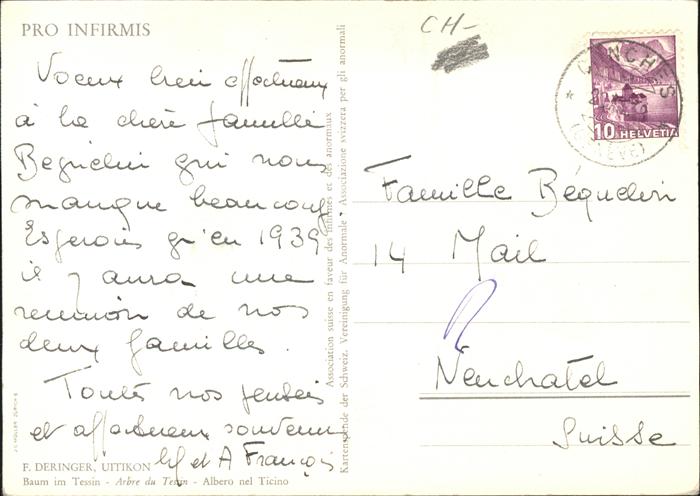 PRO INFIRMIS
Voeux bien affectueux
à la chère famille
Béguelin qui nous
manque beaucoup
Esperons qu'en 1939
il y aura une
reunion de nos
deux familles.
Toutes nos pensées
et affectueux souvenir
et A François
F. DERINGER, UITIKON
Baum im Tessin - Arbre du Tessin - Albero nel Ticino
J.C. MÜLLER ZÜRICH 8
Association suisse en faveur des infirmes et des anormaux
Kartenspende der Schweiz. Vereinigung für Anormale · Associazione svizzera per gli anormali
CH-
CONCHES
(GENÈVE)
10 HELVETIA
Famille Béguelin
14 Mail
Neuchatel
Suisse